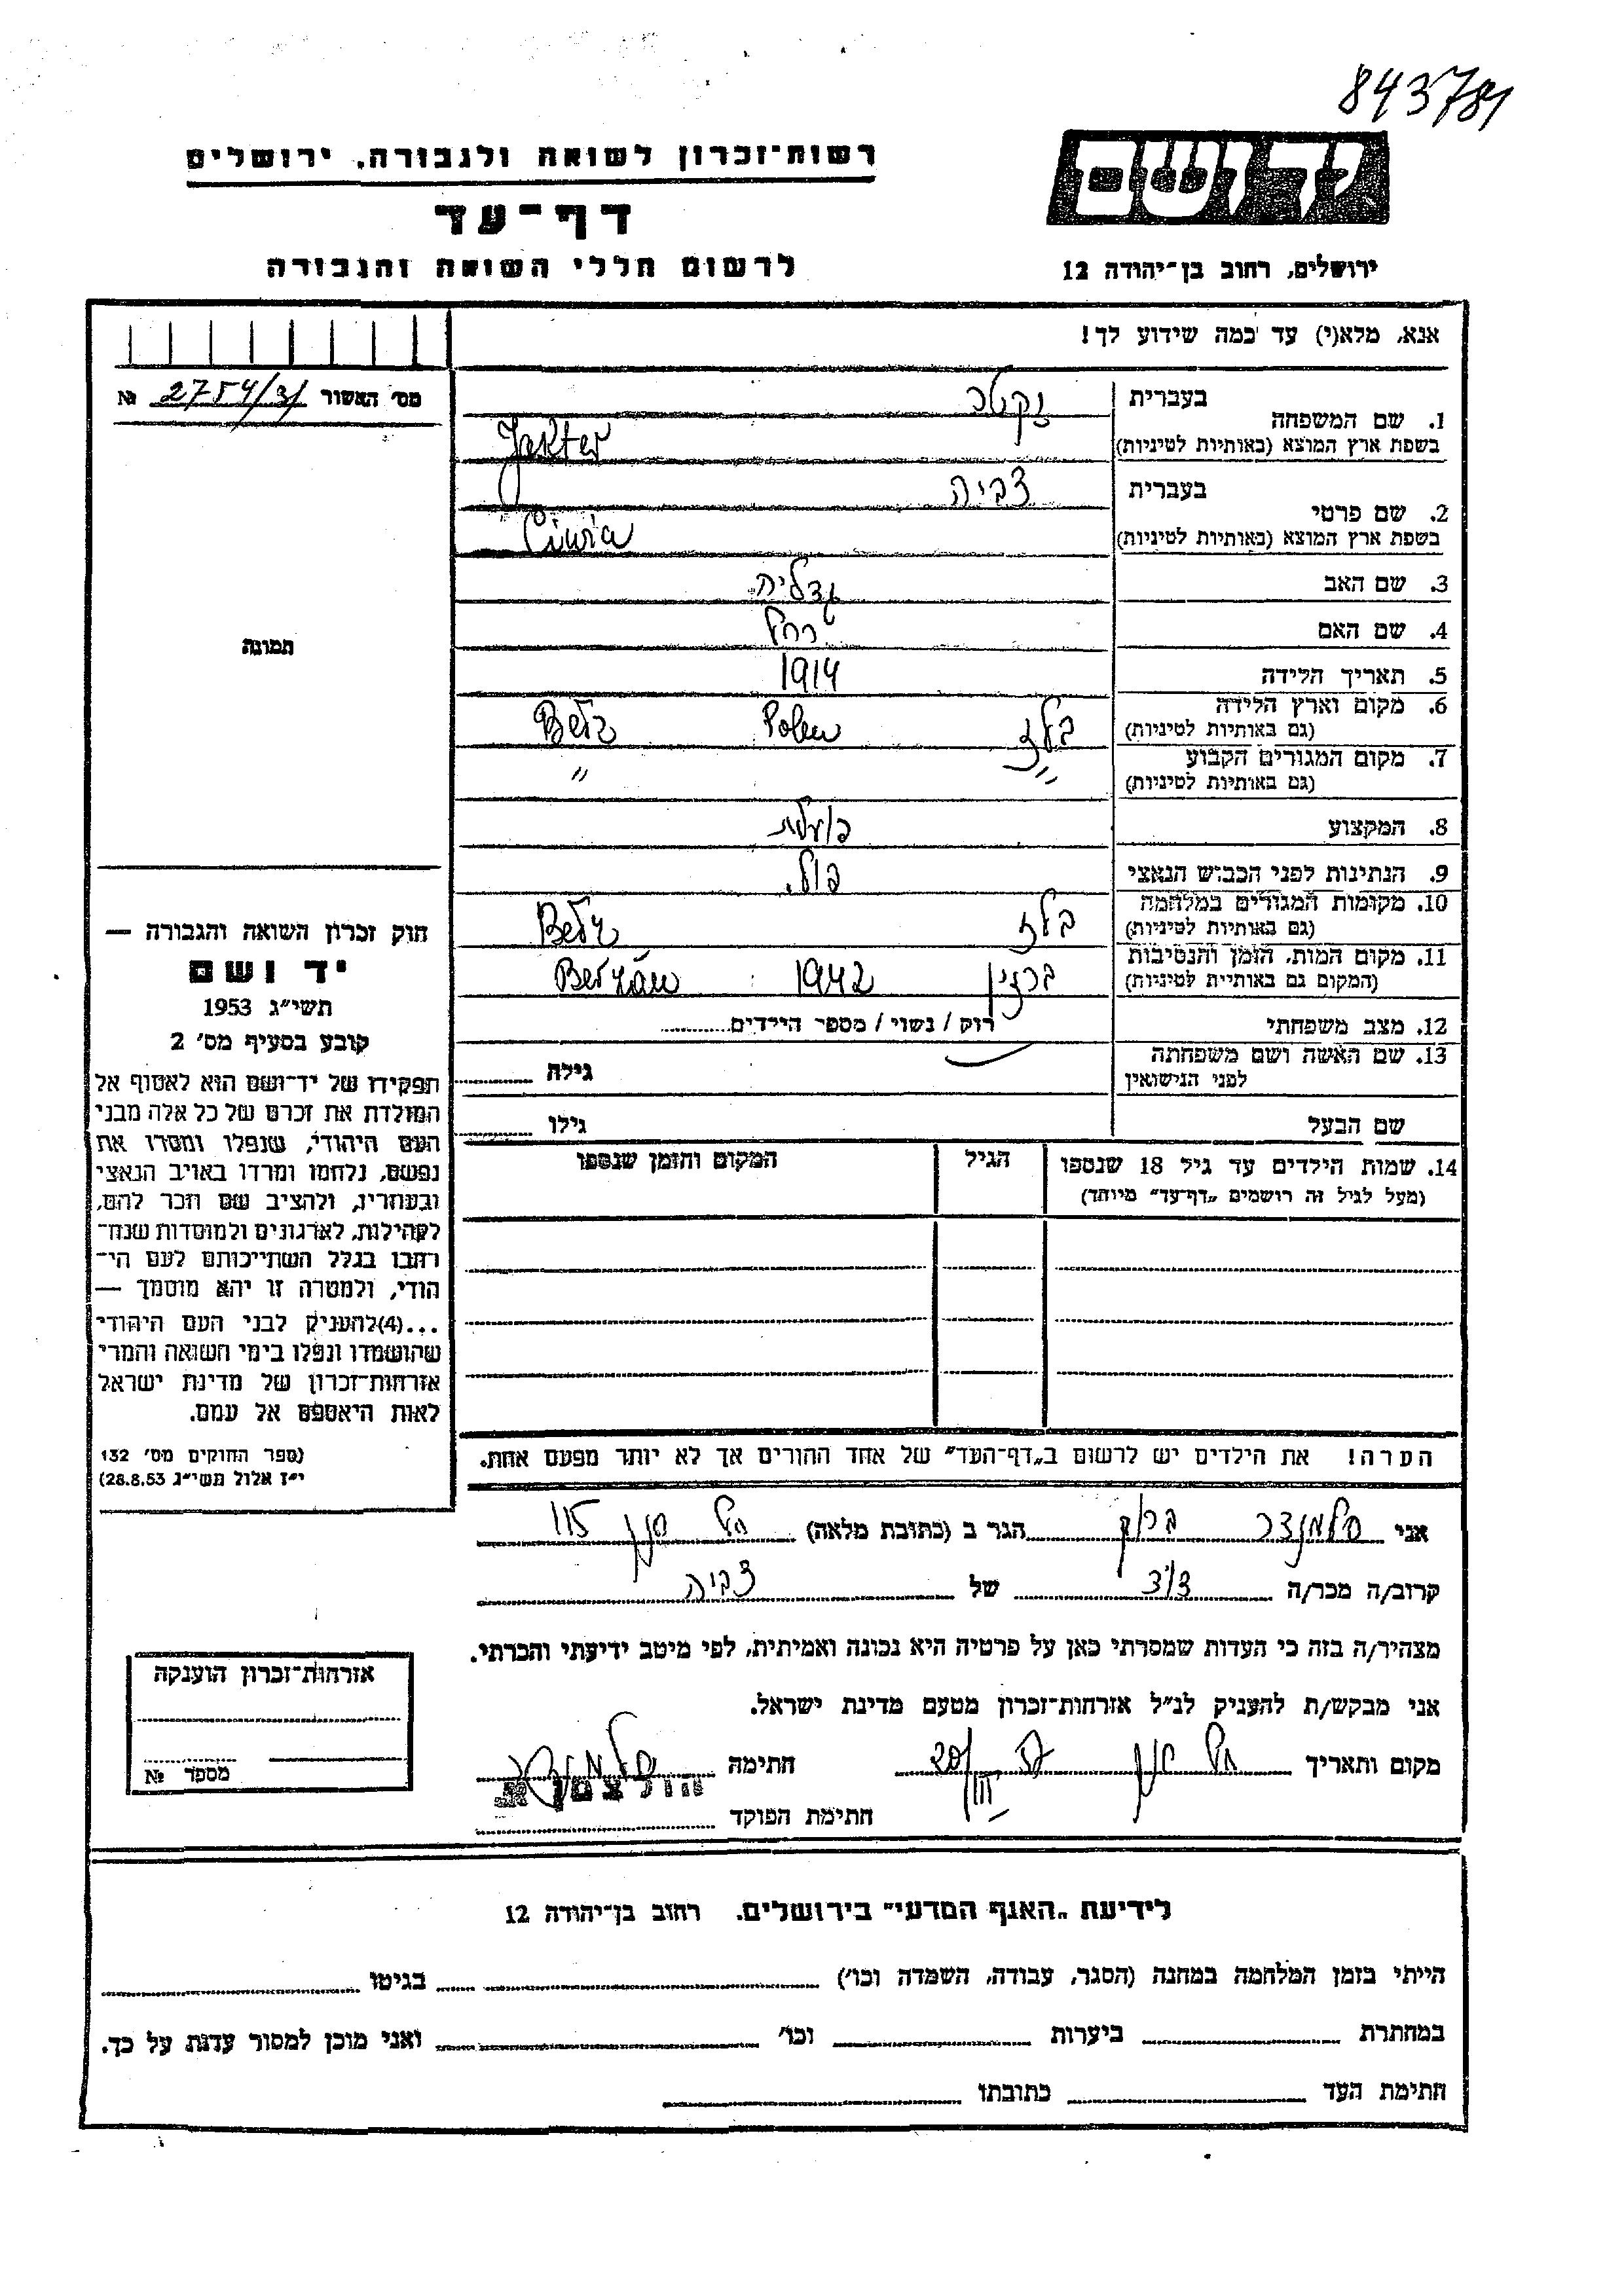 843781
רשות־זכרון לשואה ולגבורה, ירושלים
דף־עד
לרשום חללי השואה והגבורה
יד ושם
ירושלים, רחוב בן־יהודה 12
אנא, מלא(י) עד כמה שידוע לך!
מס' האשור 2754/31 №
תמונה
1. שם המשפחה בעברית יקטר
בשפת ארץ המוצא (באותיות לטיניות) Jekter
2. שם פרטי בעברית צביה
בשפת ארץ המוצא (באותיות לטיניות) Ciwia
3. שם האב גדליה
4. שם האם רחל
5. תאריך הלידה 1914
6. מקום וארץ הלידה בלז Polen Bełz
(גם באותיות לטיניות)
7. מקום המגורים הקבוע " "
(גם באותיות לטיניות)
8. המקצוע פועלת
9. הנתינות לפני הכבוש הנאצי פול.
10. מקומות המגורים במלחמה בלז Bełz
(גם באותיות לטיניות)
11. מקום המות, הזמן והנסיבות 1942
(המקום גם באותיות לטיניות)
12. מצב משפחתי רוק / נשוי / מספר הילדים
13. שם האשה ושם משפחתה גילה
לפני הנישואין
שם הבעל גילו
14. שמות הילדים עד גיל 18 שנספו הגיל המקום והזמן שנספו
(מעל לגיל זה רושמים "דף־עד" מיוחד)
הערה! את הילדים יש לרשום ב"דף־העד" של אחד ההורים אך לא יותר מפעם אחת.
חוק זכרון השואה והגבורה —
יד ושם
תשי"ג 1953
קובע בסעיף מס' 2
תפקידו של יד־ושם הוא לאסוף אל
המולדת את זכרם של כל אלה מבני
העם היהודי, שנפלו ומסרו את
נפשם, נלחמו ומרדו באויב הנאצי
ובעוזריו, ולהציב שם וזכר להם,
לקהילות, לארגונים ולמוסדות שנח־
רבו בגלל השתייכותם לעם הי־
הודי, ולמטרה זו יהא מוסמך —
...(4)להעניק לבני העם היהודי
שהושמדו ונפלו בימי השואה והמרי
אזרחות־זכרון של מדינת ישראל
לאות היאספם אל עמם.
(ספר החוקים מס' 132
י"ז אלול תשי"ג 28.8.53)
אני סלמנדר ברוך הגר ב (כתובת מלאה) 115
קרוב/ה מכר/ה של צביה
מצהיר/ה בזה כי העדות שמסרתי כאן על פרטיה היא נכונה ואמיתית, לפי מיטב ידיעתי והכרתי.
אני מבקש/ת להעניק לנ"ל אזרחות־זכרון מטעם מדינת ישראל.
מקום ותאריך חתימה
חתימת הפוקד הולצמן א.
אזרחות־זכרון הוענקה
מספר №
לידיעת "האגף המדעי" בירושלים. רחוב בן־יהודה 12
הייתי בזמן המלחמה במחנה (הסגר, עבודה, השמדה וכו') בגיטו
במחתרת ביערות וכו' ואני מוכן למסור עדות על כך.
חתימת העד כתובתו